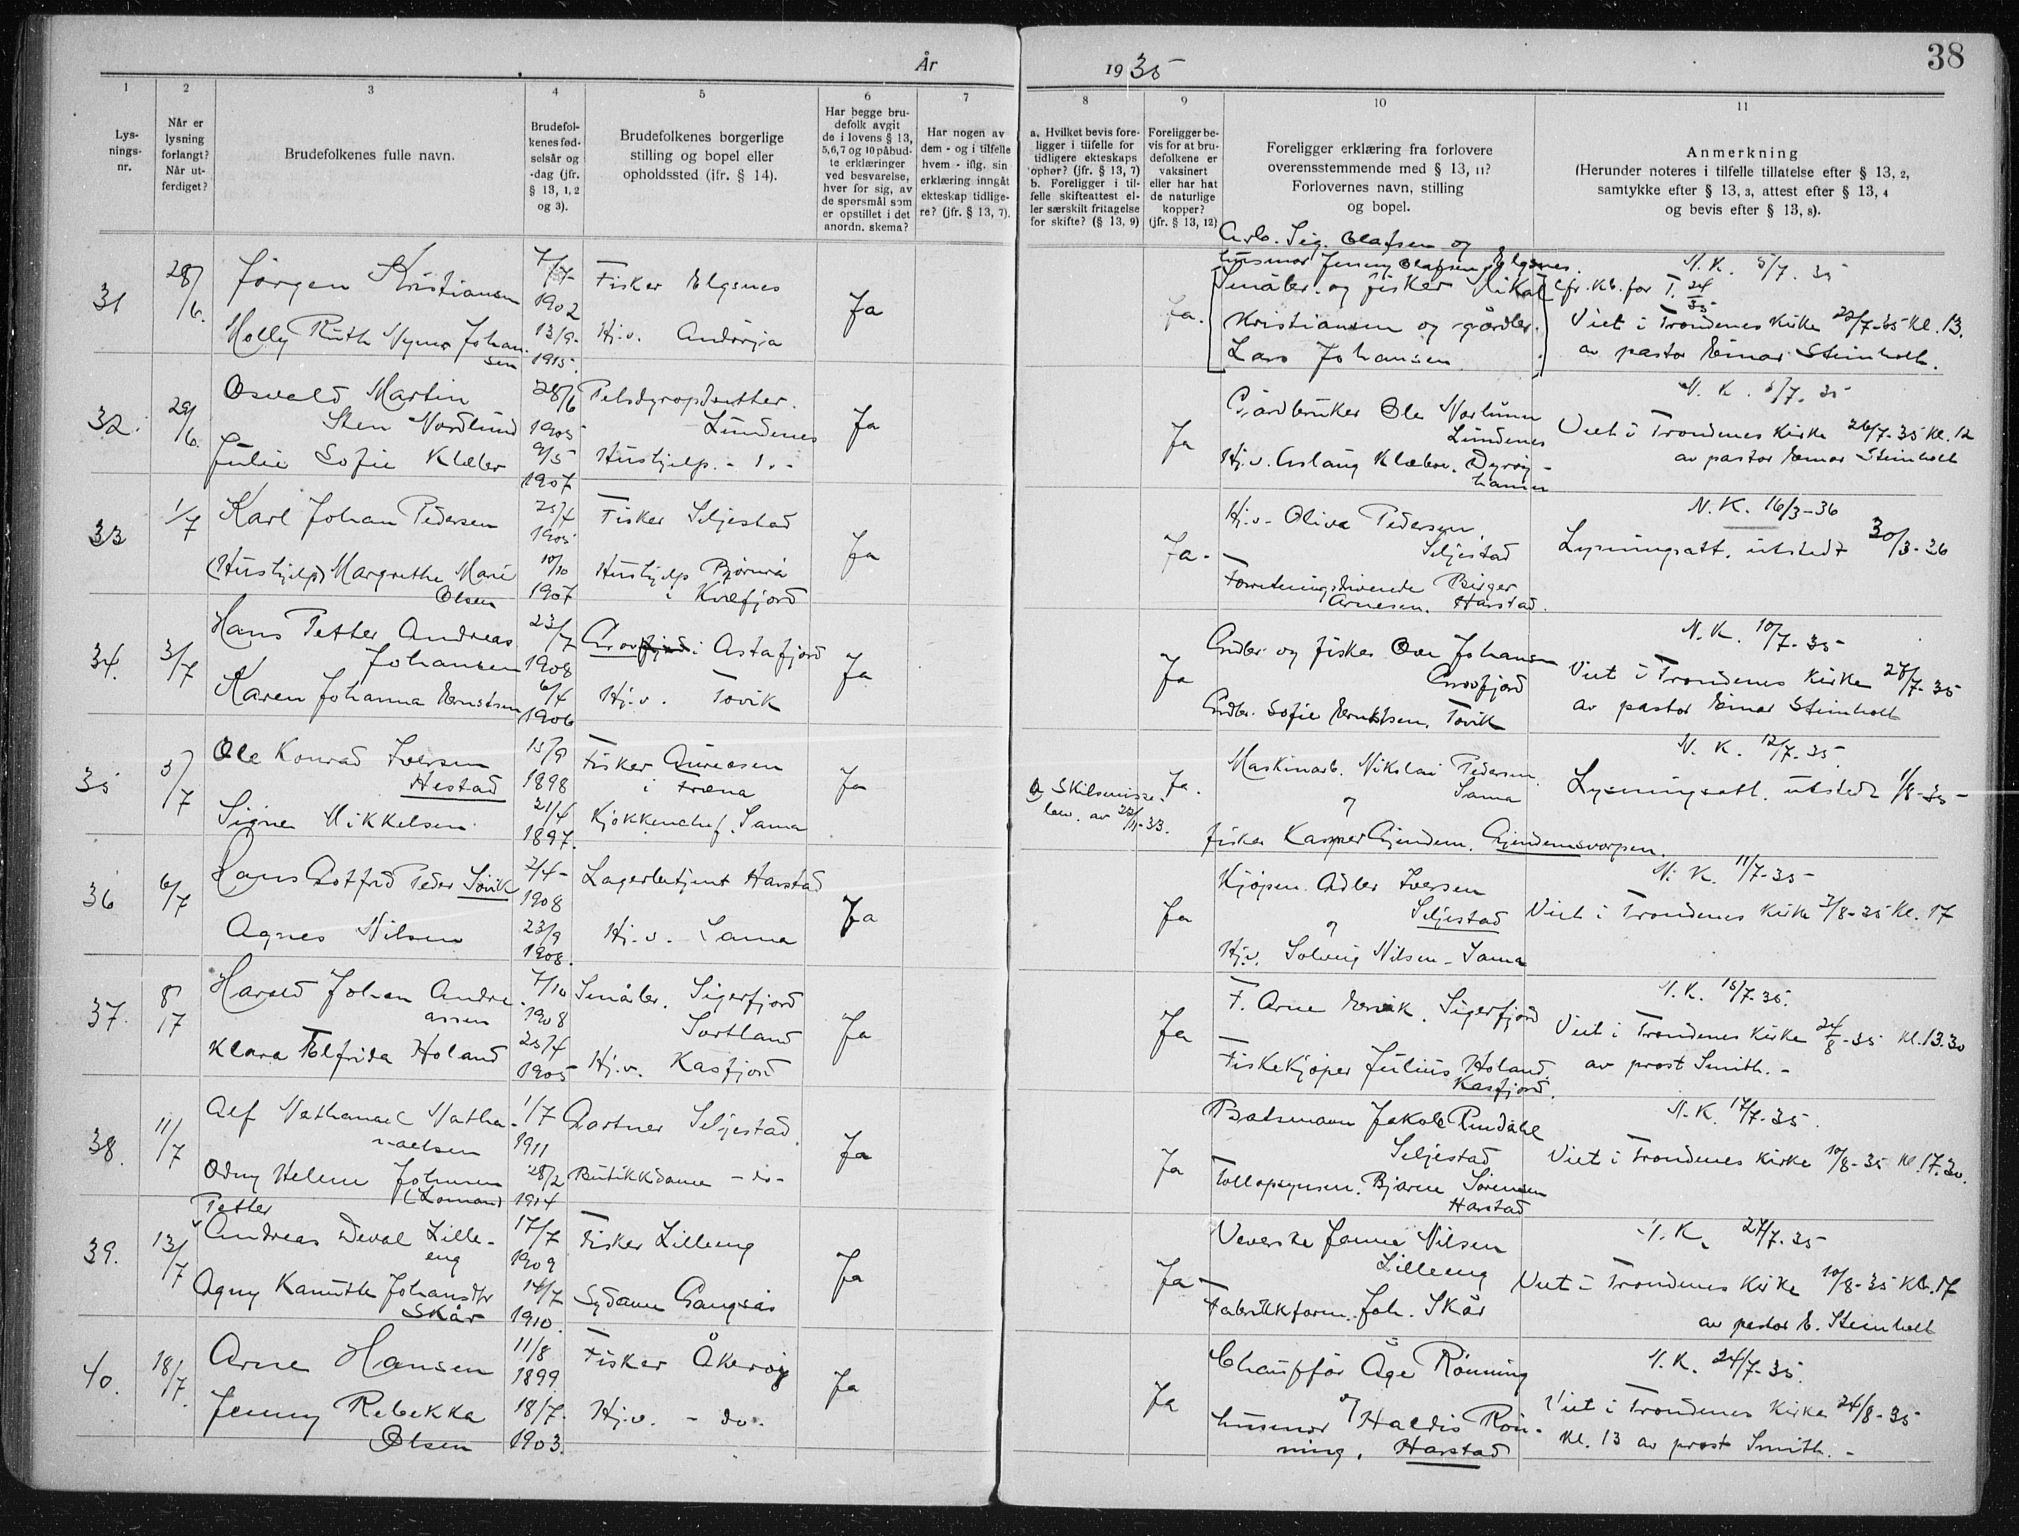 38
År 1935
1 2 3 4 5 6 7 8 9 10 11
Lys-
nings-
nr.
Når er
lysning
forlangt?
Når ut-
ferdiget?
Brudefolkenes fulle navn.
Brudefol-
kenes fød-
selsår og
-dag (jfr.
§ 13, 1, 2
og 3).
Brudefolkenes borgerlige
stilling og bopel eller
opholdssted (jfr. § 14).
Har begge bru-
defolk avgit
de i lovens § 13,
5,6,7 og 10 påbud-
te erklæringer
ved besvarelse,
hver for sig, av
de spørsmål som
er opstillet i det
anordn. skema?
Har nogen av
dem - og i tilfelle
hvem - iflg. sin
erklæring inngåt
ekteskap tidlige-
re? (jfr. § 13, 7).
a. Hvilket bevis fore-
ligger i tilfelle for
tidligere ekteskaps
ophør? (jfr. § 13, 7)
b. Foreligger i til-
felle skifteattest el-
ler særskilt fritagelse
for skifte? (§ 13, 9)
Foreligger be-
vis for at bru-
defolkene er
vaksinert
eller har hat
de naturlige
kopper?
(jfr. § 13, 12)
Foreligger erklæring fra forlovere
overensstemmende med § 13, 11?
Forlovernes navn, stilling
og bopel.
Anmerkning
(Herunder noteres i tilfelle tillatelse efter § 13, 2,
samtykke efter § 13, 3, attest efter § 13, 4
og bevis efter § 13, 8).
31
28/6.
Jørgen Kristiansen
7/7-
1902
Fisker Elgsnes
Ja
Molly Ruth Johan-
sen
13/9-
1915.
Hj.v. Andørja
Ja.
Arb. Sig. Olafsen og
husmor Jenny Olafsen, Elgsnes.
[Småbr. og fisker Mikal
Kristiansen og gårdbr.
Lars Johansen.]
N.K. 5/7. 35
cfr. kb. for T. 24/35
Viet i Trondenes Kirke 22/7-35 kl. 13.
av pastor Einar Steinholt.
32.
29/6.
Osvald Martin
Sten Nordlund
28/6
1905
Pelsdyropdretter.
Lundenes
Ja
Julie Sofie Klæbo
9/5
1907
Hushjelp. - " -
Ja
Gårdbruker Ole Norlunn
Lundenes
Hj.v. Aslaug Klæboe. Dyrøy-
hamn
N. K. 5/7. 35
Viet i Trondenes Kirke 26/7-35 kl. 12
av pastor Einar Steinholt
33
1/7
Karl Johan Pedersen
25/4
1905
Fisker Seljestad
Ja
(Hushjelp) Margrethe Marie
Olsen
10/10
1907
Hushjelp Bjørnrå
i Kvæfjord
Ja.
Hj.v. Oliva Pedersen,
Seljestad
Forretningsdrivende Birger
Arnesen. Harstad.
N. K. 16/3-36
Lysningsatt. utstedt 30/3-36
34.
3/7
Hans Petter Andreas
Johansen
23/7
1908
Grovfjord i Astafjord
Ja
Karen Johanna Ernstsen
6/4
1906
Hj.v. Tovik
Ja
Grdbr. og fisker Ove Johansen
Grovfjord
Grdbr. Sofie Ernstsen. Tovik
N. K. 10/7. 35
Viet i Trondenes Kirke 28/7-35
av pastor Einar Steinholt
35
5/7
Ole Konrad Iversen
Hestad
15/9
1898
Fisker
i Træna
Ja
Signe Mikkelsen
21/4
1897.
Kjøkkenchef. Sama
a) Skilsmisse-
bev. av 22/11-33.
Ja.
Maskinarb. Nikolai Pedersen
Sama
og
fisker Kasper Gjendem.
N. K. 12/7. 35.
Lysningsatt. utstedt 1/8-35-
36
6/7
Hans Gotfred Peder Søvik
2/4-
1908
Lagerbetjent Harstad
Ja
Agnes Nilsen
23/9
1908.
Hj.v. Sama
Ja
Kjøpm. Adler Iversen
Seljestad
og
Hj.v. Solveig Nilsen - Sama
N. K. 11/7-35-
Viet i Trondenes Kirke 3/8-35 kl. 17
37.
8/7
Harald Johan Andre-
assen
7/10
1908
Småbr. Sigerfjord
Sortland
Ja
Klara Elfrida Holand
25/4
1905
Hj.v. Kasfjord
Ja
F. Arne Ervik. Sigerfjord
Fiskekjøper Julius Holand.
Kasfjord.
N. K. 15/7-35.
Viet i Trondenes Kirke 24/8-35 kl. 13.30
av prost Smith. -
38.
11/7
Alf Nathanael Natha-
naelsen
1/7
1911
Gartner Seljestad.
Ja
Odny Helene Johnsen
(Loman)
28/2
1914
Butikkdame - do -
Ja
Batsmann Jakob Rindahl
Seljestad
Tollopsynsm. Bjarne Sørensen
Harstad
N. K. 17/7. 35.
Viet i Trondenes Kirke 10/8-35 kl. 17.30.
39.
13/7
Petter
Andreas Edeval Lille-
eng
17/7
1909
Fisker Lilleeng
Ja
Agny Kamille Johansdtr
Skår
14/7
1910.
Sydame Gangsås
Ja
Veverske Janna Nilsen
Lilleeng
Fabrikkform. Joh. Skår
N. K. 27/7. 35
Viet i Trondenes Kirke 10/8-35 kl. 17
av pastor E. Steinholt
40.
18/7.
Arne Hansen
11/8
1899
Fisker Åkerøy
Ja
Jenny Rebekka
Olsen
18/7.
1903.
Hj.v. - do -
Ja
Chauffør Åge Rønning
og
husmor Haldis Røn-
ning, Harstad
N. K. 24/7-35.
Viet i Trondenes Kirke 24/8-35
kl. 13 av prost Smith. -